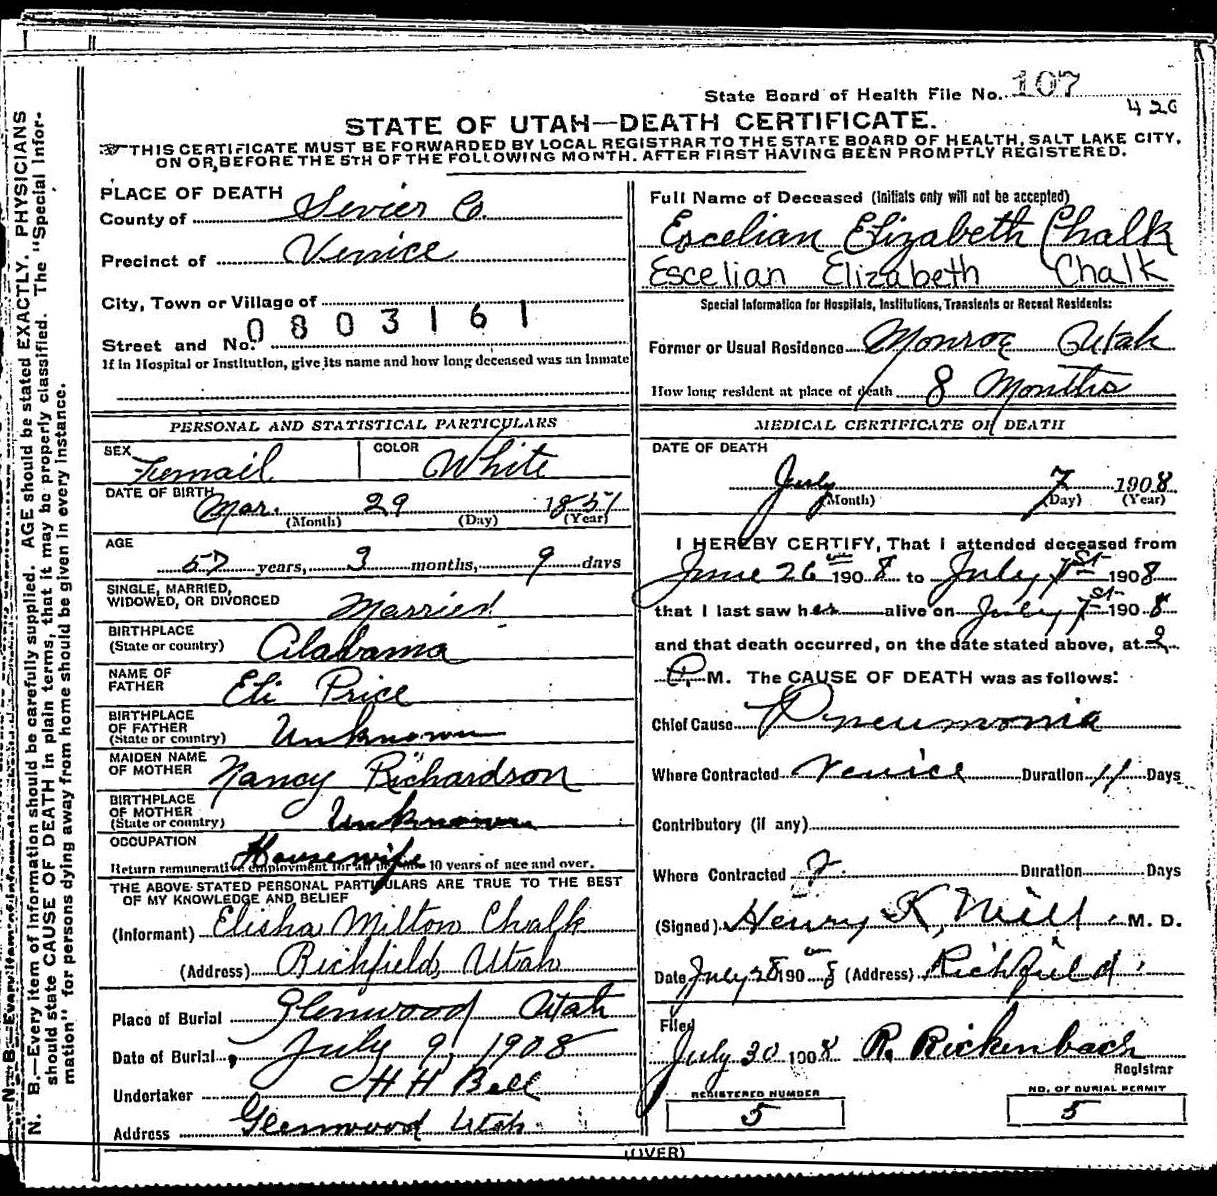 State Board of Health File No. 107
426
STATE OF UTAH—DEATH CERTIFICATE.
THIS CERTIFICATE MUST BE FORWARDED BY LOCAL REGISTRAR TO THE STATE BOARD OF HEALTH, SALT LAKE CITY,
ON OR BEFORE THE 5TH OF THE FOLLOWING MONTH. AFTER FIRST HAVING BEEN PROMPTLY REGISTERED.
PLACE OF DEATH
County of Sevier Co.
Precinct of Venice
City, Town or Village of
0803161
Street and No.
If in Hospital or Institution, give its name and how long deceased was an inmate
PERSONAL AND STATISTICAL PARTICULARS
SEX Femail
COLOR White
DATE OF BIRTH Mar. 29 1851
(Month) (Day) (Year)
AGE
57 years, 3 months, 9 days
SINGLE, MARRIED,
WIDOWED, OR DIVORCED Married
BIRTHPLACE
(State or country) Alabama
NAME OF
FATHER Eli Price
BIRTHPLACE
OF FATHER
(State or country) Unknown
MAIDEN NAME
OF MOTHER Nancy Richardson
BIRTHPLACE
OF MOTHER
(State or country) Unknown
OCCUPATION Housewife
Return remunerative employment for all persons 10 years of age and over.
THE ABOVE STATED PERSONAL PARTICULARS ARE TRUE TO THE BEST
OF MY KNOWLEDGE AND BELIEF
(Informant) Elisha Milton Chalk
(Address) Richfield, Utah
Place of Burial Glenwood Utah
Date of Burial July 9, 1908
Undertaker H H Bell
Address Glenwood Utah
Full Name of Deceased (Initials only will not be accepted)
Escelian Elizabeth Chalk
Escelian Elizabeth Chalk
Special Information for Hospitals, Institutions, Transients or Recent Residents:
Former or Usual Residence Monroe Utah
How long resident at place of death 8 Months
MEDICAL CERTIFICATE OF DEATH
DATE OF DEATH
July 7 1908
(Month) (Day) (Year)
I HEREBY CERTIFY, That I attended deceased from
June 26 1908 to July 1st 1908
that I last saw her alive on July 1st 1908
and that death occurred, on the date stated above, at 2
P. M. The CAUSE OF DEATH was as follows:
Chief Cause Pneumonia
Where Contracted Venice Duration 11 Days
Contributory (if any)
Where Contracted ?. Duration Days
(Signed) Henry K, Neill, M. D.
Date July 28 1908 (Address) Richfield.
Filed
July 30 1908 R. Rickenbach
Registrar
REGISTERED NUMBER
5
NO. OF BURIAL PERMIT
5
(OVER)
N. B.—Every item of information should be carefully supplied. AGE should be stated EXACTLY. PHYSICIANS
should state CAUSE OF DEATH in plain terms, that it may be properly classified. The "Special Infor-
mation" for persons dying away from home should be given in every instance.